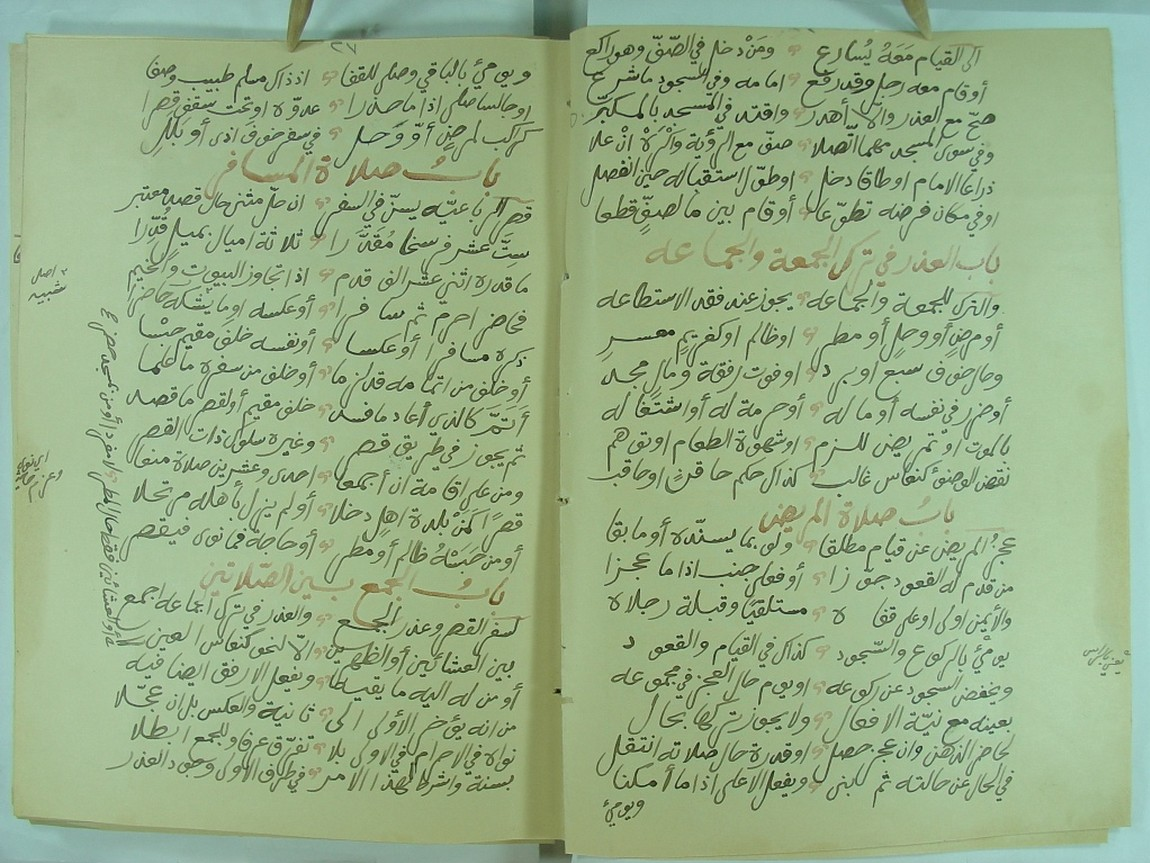 الى القيام مَعَهُ يُسارع ؞ ومَنْ دخل في الصّفّ وهو راكع
أو قام معه رجل وقد رفع ؞ امامه وفي السجود ما شرع
صحّ مع العذر والّا أهدر ؞ واقتد في المسجد بالمكبّر
وفي سوى المسجد مهما اتّصلا ؞ صفّ مع الرّؤية واكْرَهْ انْ علا
ذراعا الامام او طاق دخل ؞ او طوّل استقباله حين انفصل
او في مكان فرضه تطوّعا ؞ أو قام بين ما لصفٍّ قطعا
باب العذر في ترك الجمعة والجماعه
والترك للجمعة والجماعه ؞ يجوز عند فقد الاستطاعه
أو مرض أو وحل أو مطر ؞ او ظالم او كغريم معسر
وحال خوف سبع او برد ؞ او فوت رفقة ومال مجد
أو ضرر في نفسه أو ماله ؞ أو حرمة له أو اشتغاله
بالموت او تمريض للزم ؞ او شهوة الطعام او توهم
نقض الوضوء كنعاس غالب ؞ كذاك حكم حاقن او حاقب
بابُ صلاة المريض
عجزُ المريض عن قيام مطلقا ؞ ولو بما يسندّه أو ما بقا
من قدم له القعود جوّزا ؞ أو فعلى جنب اذا ما عجزا
والأيمن اولى او على قفاه ؞ مستلقيًا وقبلة رجلاه
يومئ بالركوع والسّجود ؞ كذاك في القيام والقعود
ويخفض السجود عن ركوعه ؞ او يوم حال العجز في مجموعه
بعينه مع نيّة الافعال ؞ ولا يجوز تركها بحال
لحاضر الذهن وان عجز حصل ؞ او قدرة حال صلاته انتقل
في الحال عن حالته ثم لبنى ؞ ويفعل الاعلى اذا ما أمكنا
ويومئ
ويومئ بالباقي وصلى للقفا ؞ اذ ذاك مسلم طبيب وصفا
او جالسا صلى اذا ما حذرا ؞ عدوّه او تحت سقف قصرا
كراكب لمرض أو وَحل ؞ في سفر خوف اذى أو بلل
بابُ صلاة المسافر
قصر الرباعيّه يسنّ في السفر ؞ ان حلّ مثنى حال قصده معتبر
ستَّ عشر فرسخا مُقدّرا ؞ ثلاثة اميال بميل قُدِّرا
ما قدره اثنى عشر الف قدم ؞ اذا تجاوز البيوت والخيم
فحاضر احرم ثم سافرا ؞ أو عكسه او ما يشكه حاضرا
ذكره مسافرا أو عكسا ؞ أو نفسه خلف مقيم حبسا
أو خلف من اتمامه قد لزما ؞ أو خلف من سفره ما علما
أتَمّ كالذي أعاد ما فسد ؞ خلف مقيم أو لقصر ما قصد
ثم يجوز في طريق قصر ؞ وغيره سلوك ذات القصر
ومن على اقامة ان أجمعا ؞ احدى وعشرين صلاة منعا
قصرًا كمَنْ بلدة اهل دخلا ؞ أو لم يزل بأهله مرتحلا
أو من حَبَسَهُ ظالم أو مطر ؞ أو حاجة فما نوى فيقصر
بابُ الجمع بين الصّلاتين
لسفر القصر وعذر الجمع ؞ والعذر في ترك الجماعه اجمع
بين العشائين أو الظهرين ؞ والّا لنحو كنعاس العين
أو من له اليه ما يقيسا ؞ ويفعل الارفق ايضا فيه
من انه يؤخر الأولى الى ؞ ثانية والعكس بل ان عجّلا
نواه في الاحرام في الاولى بلا ؞ تفرّق عرفا وللجمع ابطلا
بسنّة واشرط لهذا الأمر ؞ في طرف الاولى وجود العذر